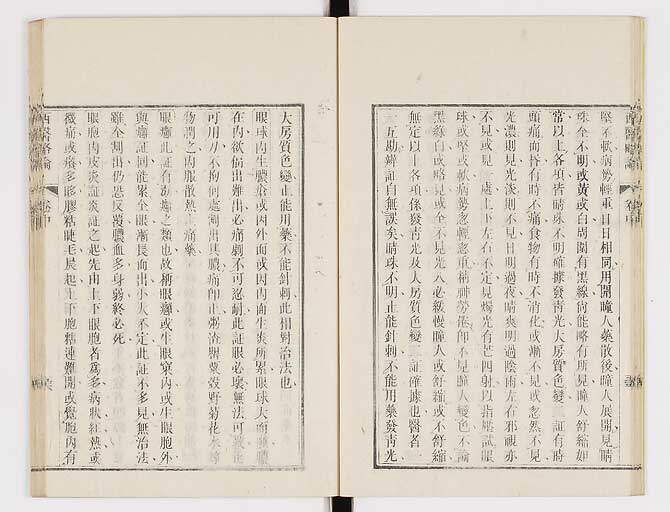 堅不軟病勢輕重日日相同用開瞳人藥散後瞳人展開見睛
珠全不明或黃或白周圍有黑線尚能略有所見瞳人舒縮如
常以上各項皆睛珠不明確據發青光大房質色變二証有時
頭痛面唇有時不痛食物有時不消化或漸不見或忽然不見
光濃則見光淡則不見日明過夜晴爽明過陰雨左右邪視亦
不見或見一處上下左右不定見燭光有芒四射以指壓試眼
球或堅或軟病勢忽輕忽重柄神勞倦即不見瞳人變色不論
黑綠白或略見或全不見光入必緩慢瞳人或舒縮或不舒縮
無定以上各項係發青光及大房質色變二証確據也醫者一
一互勘辨証自無誤矣睛珠不明止能針刺不能用藥發青光
大房質色變止能用藥不能針刺此相對治法也
眼球內生膿瘡或因外面或因內面生炎所累眼球大而腫膿
在內欲倘出難出必痛劇不可忍耐此証眼必壞無法可救止
可用刀不拘何處割出其膿痛即止粥渣罌粟殼野菊花水等
物潤之內服散熱止痛藥
眼癰此証有劫癰之類也故柄眼癰或生眼窠內或生眼胞外
與癰証同能累全眼漸長而出小大不定此証不多見無治法
雖全割出仍恐反覆膿血多身弱終必死
眼胞內皮炎証炎証之起先由上下眼胞者為多病狀紅熱或
微痛或癢多眵膠粘睫毛晨起上下胞䊀連難開或覺胞內有
西醫略論
卷中
西醫略論
卷中